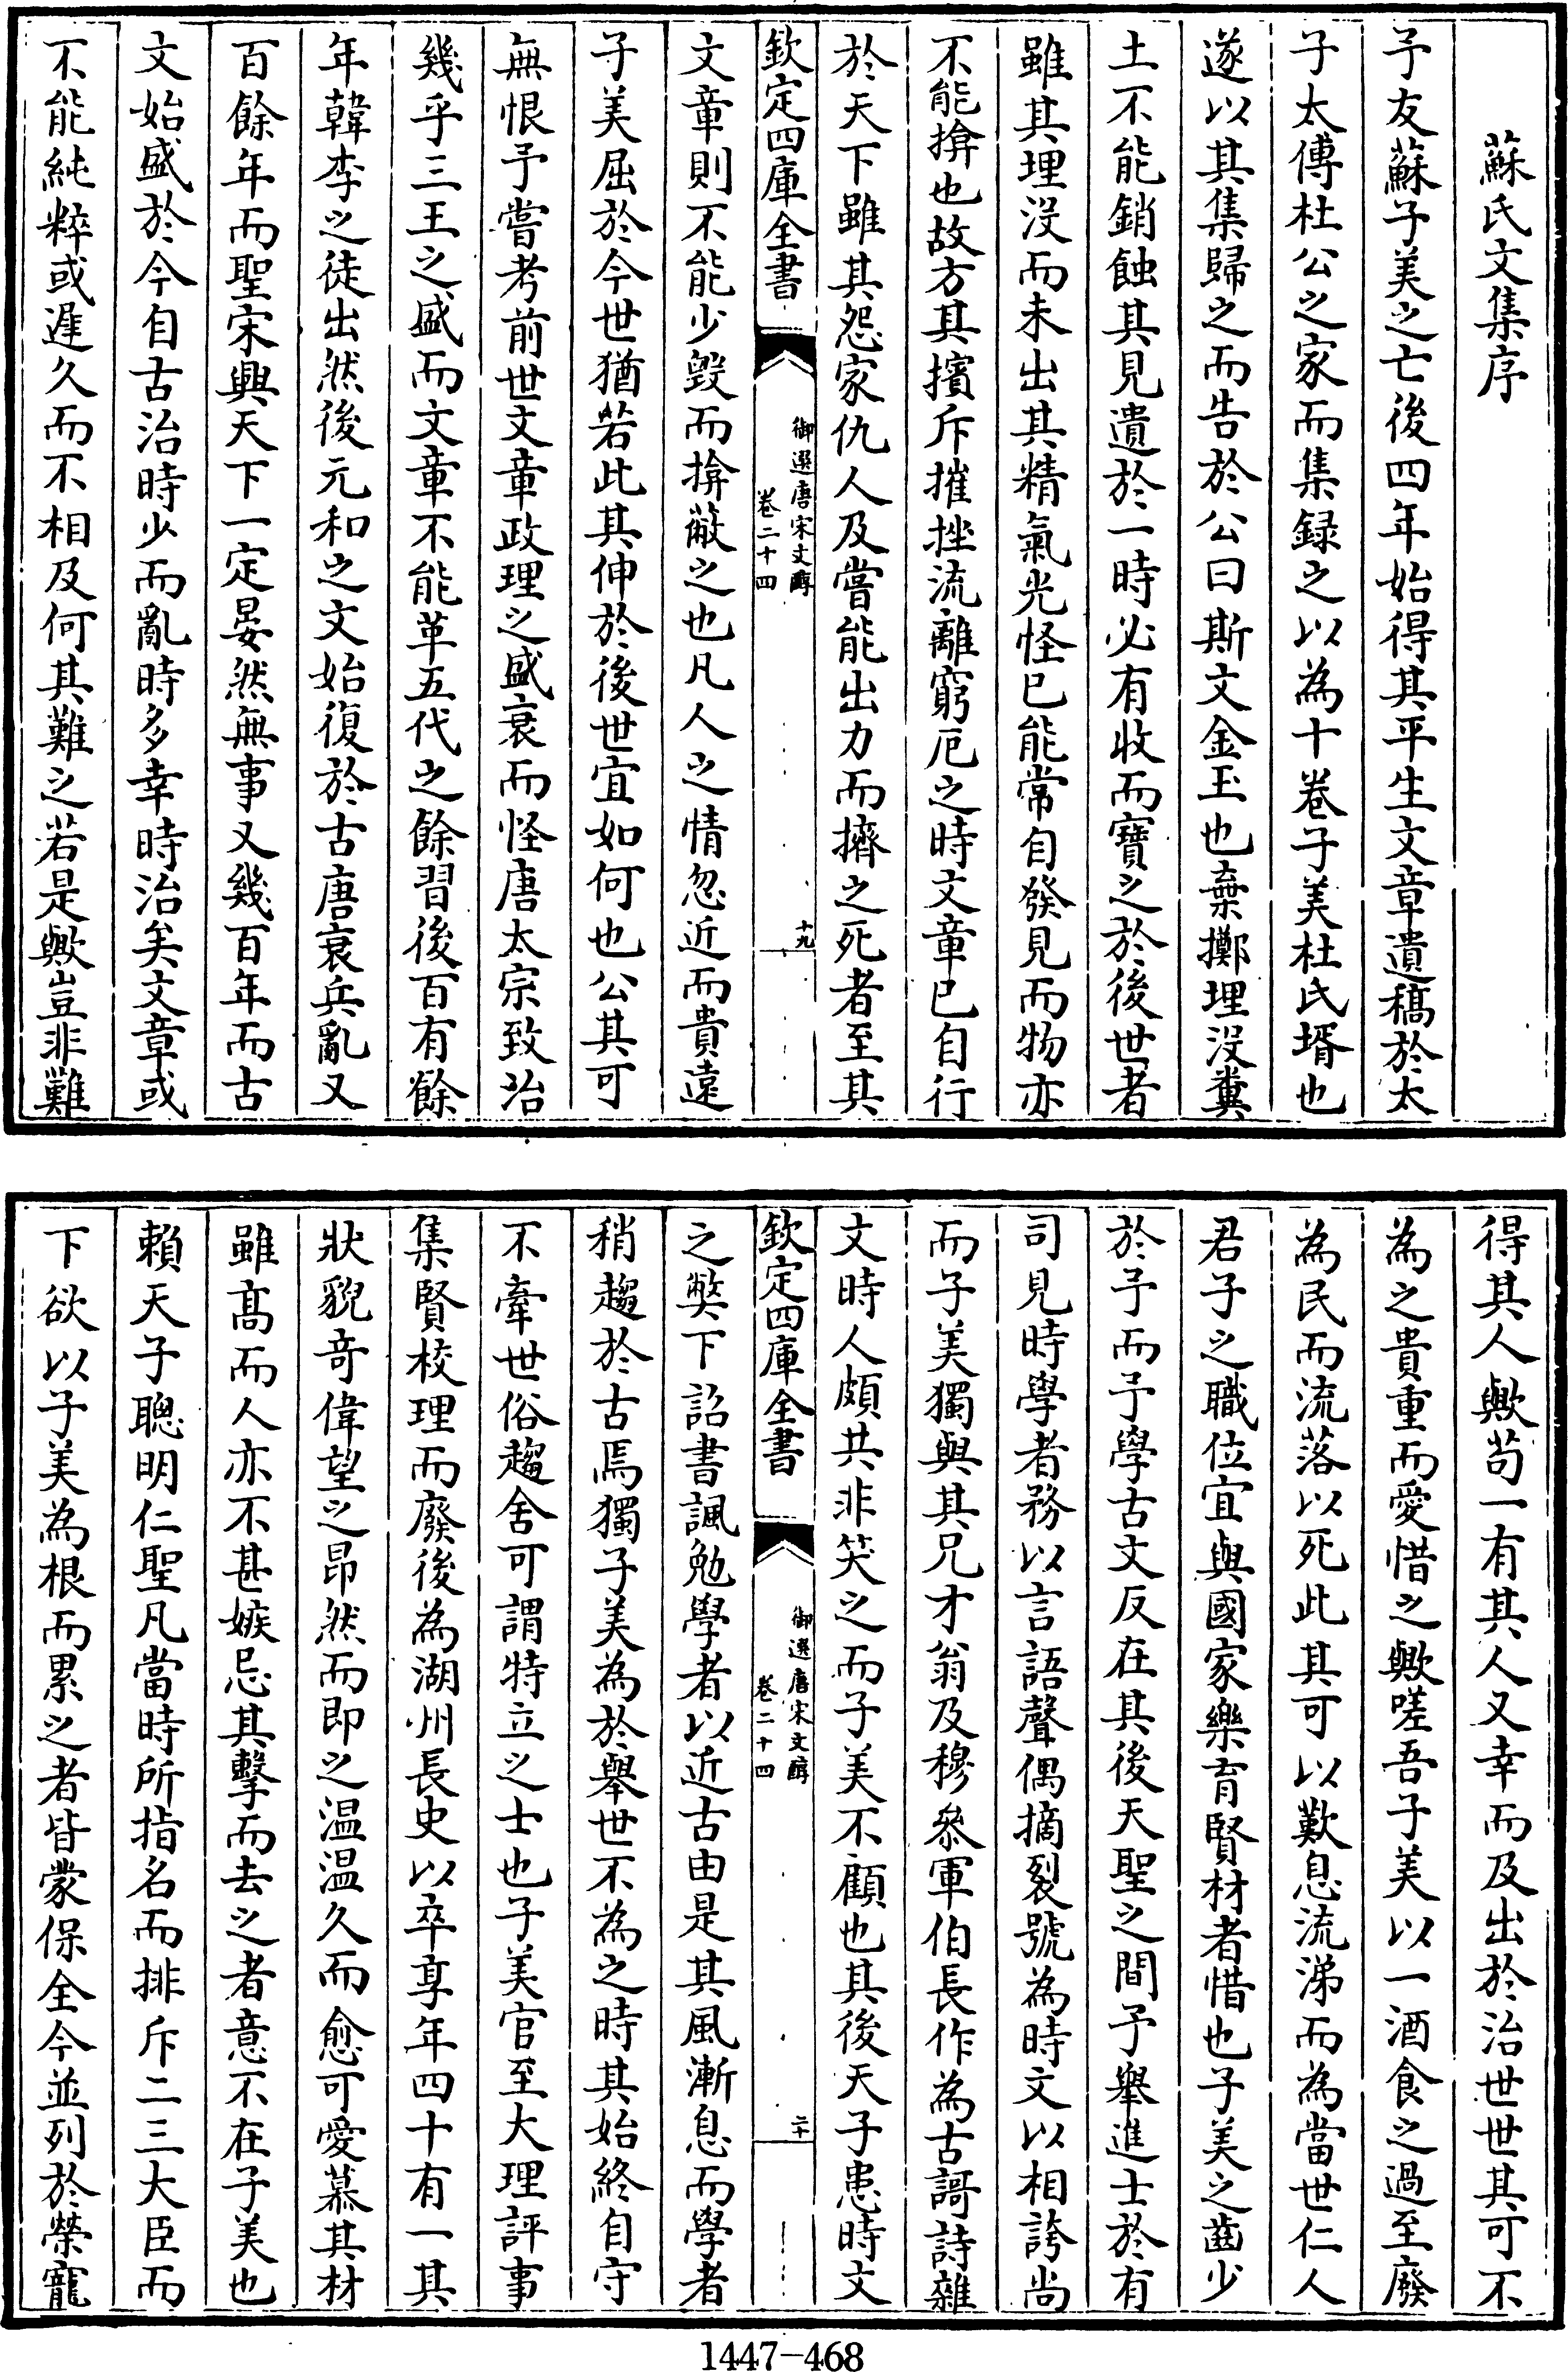 蘇氏文集序
予友蘇子美之亡後四年始得其平生文章遺稿於太
子太傅杜公之家而集録之以為十卷子美杜氏壻也
遂以其集歸之而告於公曰斯文金玉也棄擲埋没糞
土不能銷蝕其見遺於一時必有收而寶之於後世者
雖其埋没而未出其精氣光怪已能常自發見而物亦
不能揜也故方其擯斥摧挫流離窮厄之時文章已自行
於天下雖其怨家仇人及嘗能出力而擠之死者至其
欽定四庫全書
御選唐宋文醇
卷二十四
十九
文章則不能少毀而揜蔽之也凡人之情忽近而貴遠
子美屈於今世猶若此其伸於後世宜如何也公其可
無恨予嘗考前世文章政理之盛衰而怪唐太宗致治
幾乎三王之盛而文章不能革五代之餘習後百有餘
年韓李之徒出然後元和之文始復於古唐衰兵亂又
百餘年而聖宋興天下一定晏然無事又幾百年而古
文始盛於今自古治時少而亂時多幸時治矣文章或
不能純粹或遲久而不相及何其難之若是歟豈非難
得其人歟苟一有其人又幸而及出於治世世其可不
為之貴重而愛惜之歟嗟吾子美以一酒食之過至廢
為民而流落以死此其可以歎息流涕而為當世仁人
君子之職位宜與國家樂育賢材者惜也子美之齒少
於予而予學古文反在其後天聖之間予舉進士於有
司見時學者務以言語聲偶摘裂號為時文以相誇尚
而子美獨與其兄才翁及穆參軍伯長作為古謌詩雜
文時人頗共非笑之而子美不顧也其後天子患時文
欽定四庫全書
御選唐宋文醇
卷二十四
二十
之弊下詔書諷勉學者以近古由是其風漸息而學者
稍趨於古焉獨子美為於舉世不為之時其始終自守
不牽世俗趨舍可謂特立之士也子美官至大理評事
集賢校理而廢後為湖州長史以卒享年四十有一其
狀貌奇偉望之昂然而即之温温久而愈可愛慕其材
雖髙而人亦不甚嫉忌其擊而去之者意不在子美也
賴天子聰明仁聖凡當時所指名而排斥二三大臣而
下欲以子美為根而累之者皆蒙保全今並列於榮寵
1447-468